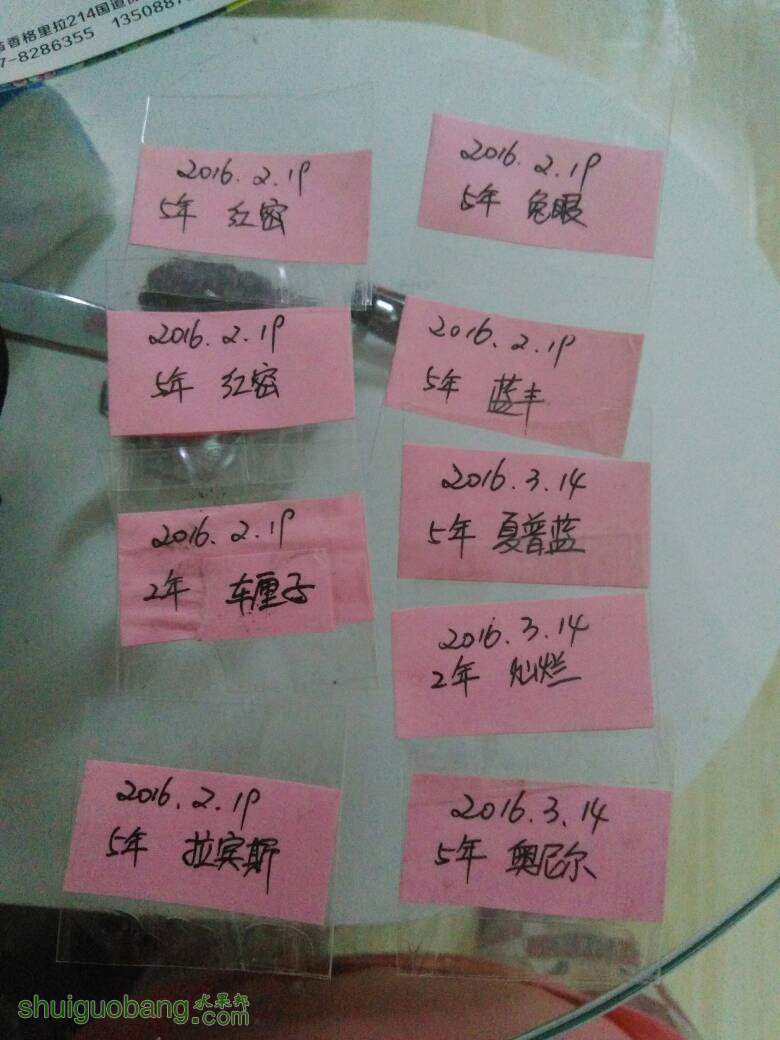 香格里拉214国道
7-8286355 135088
2016.2.19
5年 红密
2016.2.19
5年 兔眼
2016.2.19
5年 红密
2016.2.19
5年 蓝丰
2016.2.19
2年 车厘子
2016.3.14
5年 夏普蓝
2016.3.14
2年 灿烂
2016.2.19
5年 拉宾斯
2016.3.14
5年 奥尼尔
shuiguobang.com
水果邦